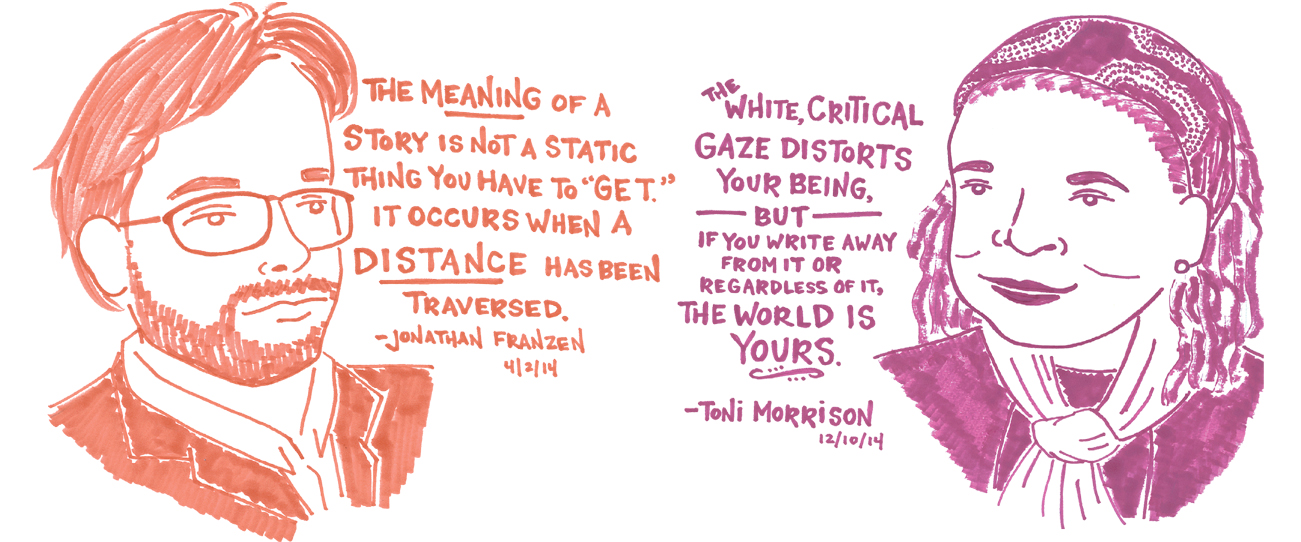 THE MEANING OF A
STORY IS NOT A STATIC
THING YOU HAVE TO "GET."
IT OCCURS WHEN A
DISTANCE HAS BEEN
TRAVERSED.
-JONATHAN FRANZEN
4/2/14
THE
WHITE, CRITICAL
GAZE DISTORTS
YOUR BEING,
BUT
IF YOU WRITE AWAY
FROM IT OR
REGARDLESS OF IT,
THE WORLD IS
YOURS.
-TONI MORRISON
12/10/14